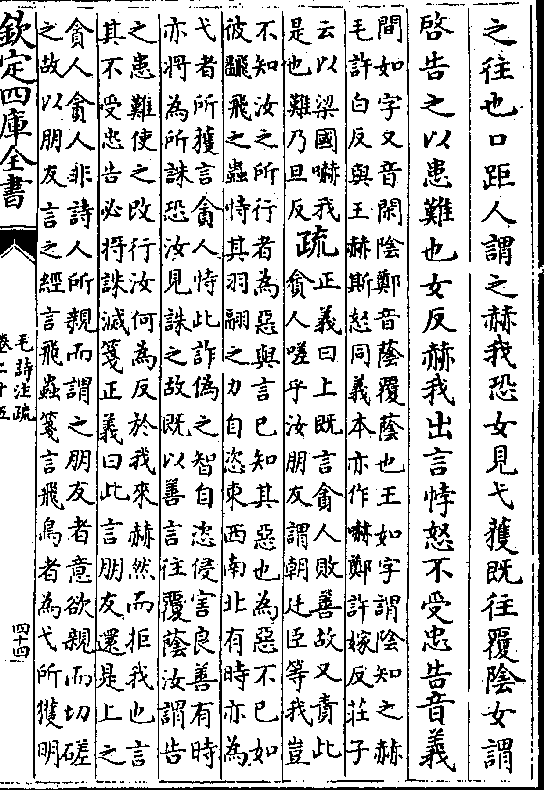 之往也口距人謂之赫我恐女見弋獲既往覆陰女謂
啓告之以患難也女反赫我出言悖怒不受忠告音義
間如字又音閑陰鄭音蔭覆蔭也王如字謂陰知之赫
毛許白反與王赫斯怒同義本亦作嚇鄭許嫁反莊子
云以梁國嚇我
是也難乃旦反
疏
正義曰上既言貪人敗善故又責此
貪人嗟乎汝朋友謂朝廷臣等我豈
不知汝之所行者為惡與言已知其惡也為惡不已如
彼飛飛之蟲恃其羽翮之力自恣東西南北有時亦為
弋者所獲言貪人恃此詐偽之智自恣侵害良善有時
亦將為所誅恐汝見誅之故既以善言往覆蔭汝謂告
之患難使之改行汝何為反於我來赫然而拒我也言
其不受忠告必將誅滅箋正義曰此言朋友還是上之
貪人貪人非詩人所親而謂之朋友者意欲親而切磋
之故以朋友言之經言飛蟲箋言飛鳥者為弋所獲明
欽定四庫全書
毛詩注疏
卷二十五
四十四